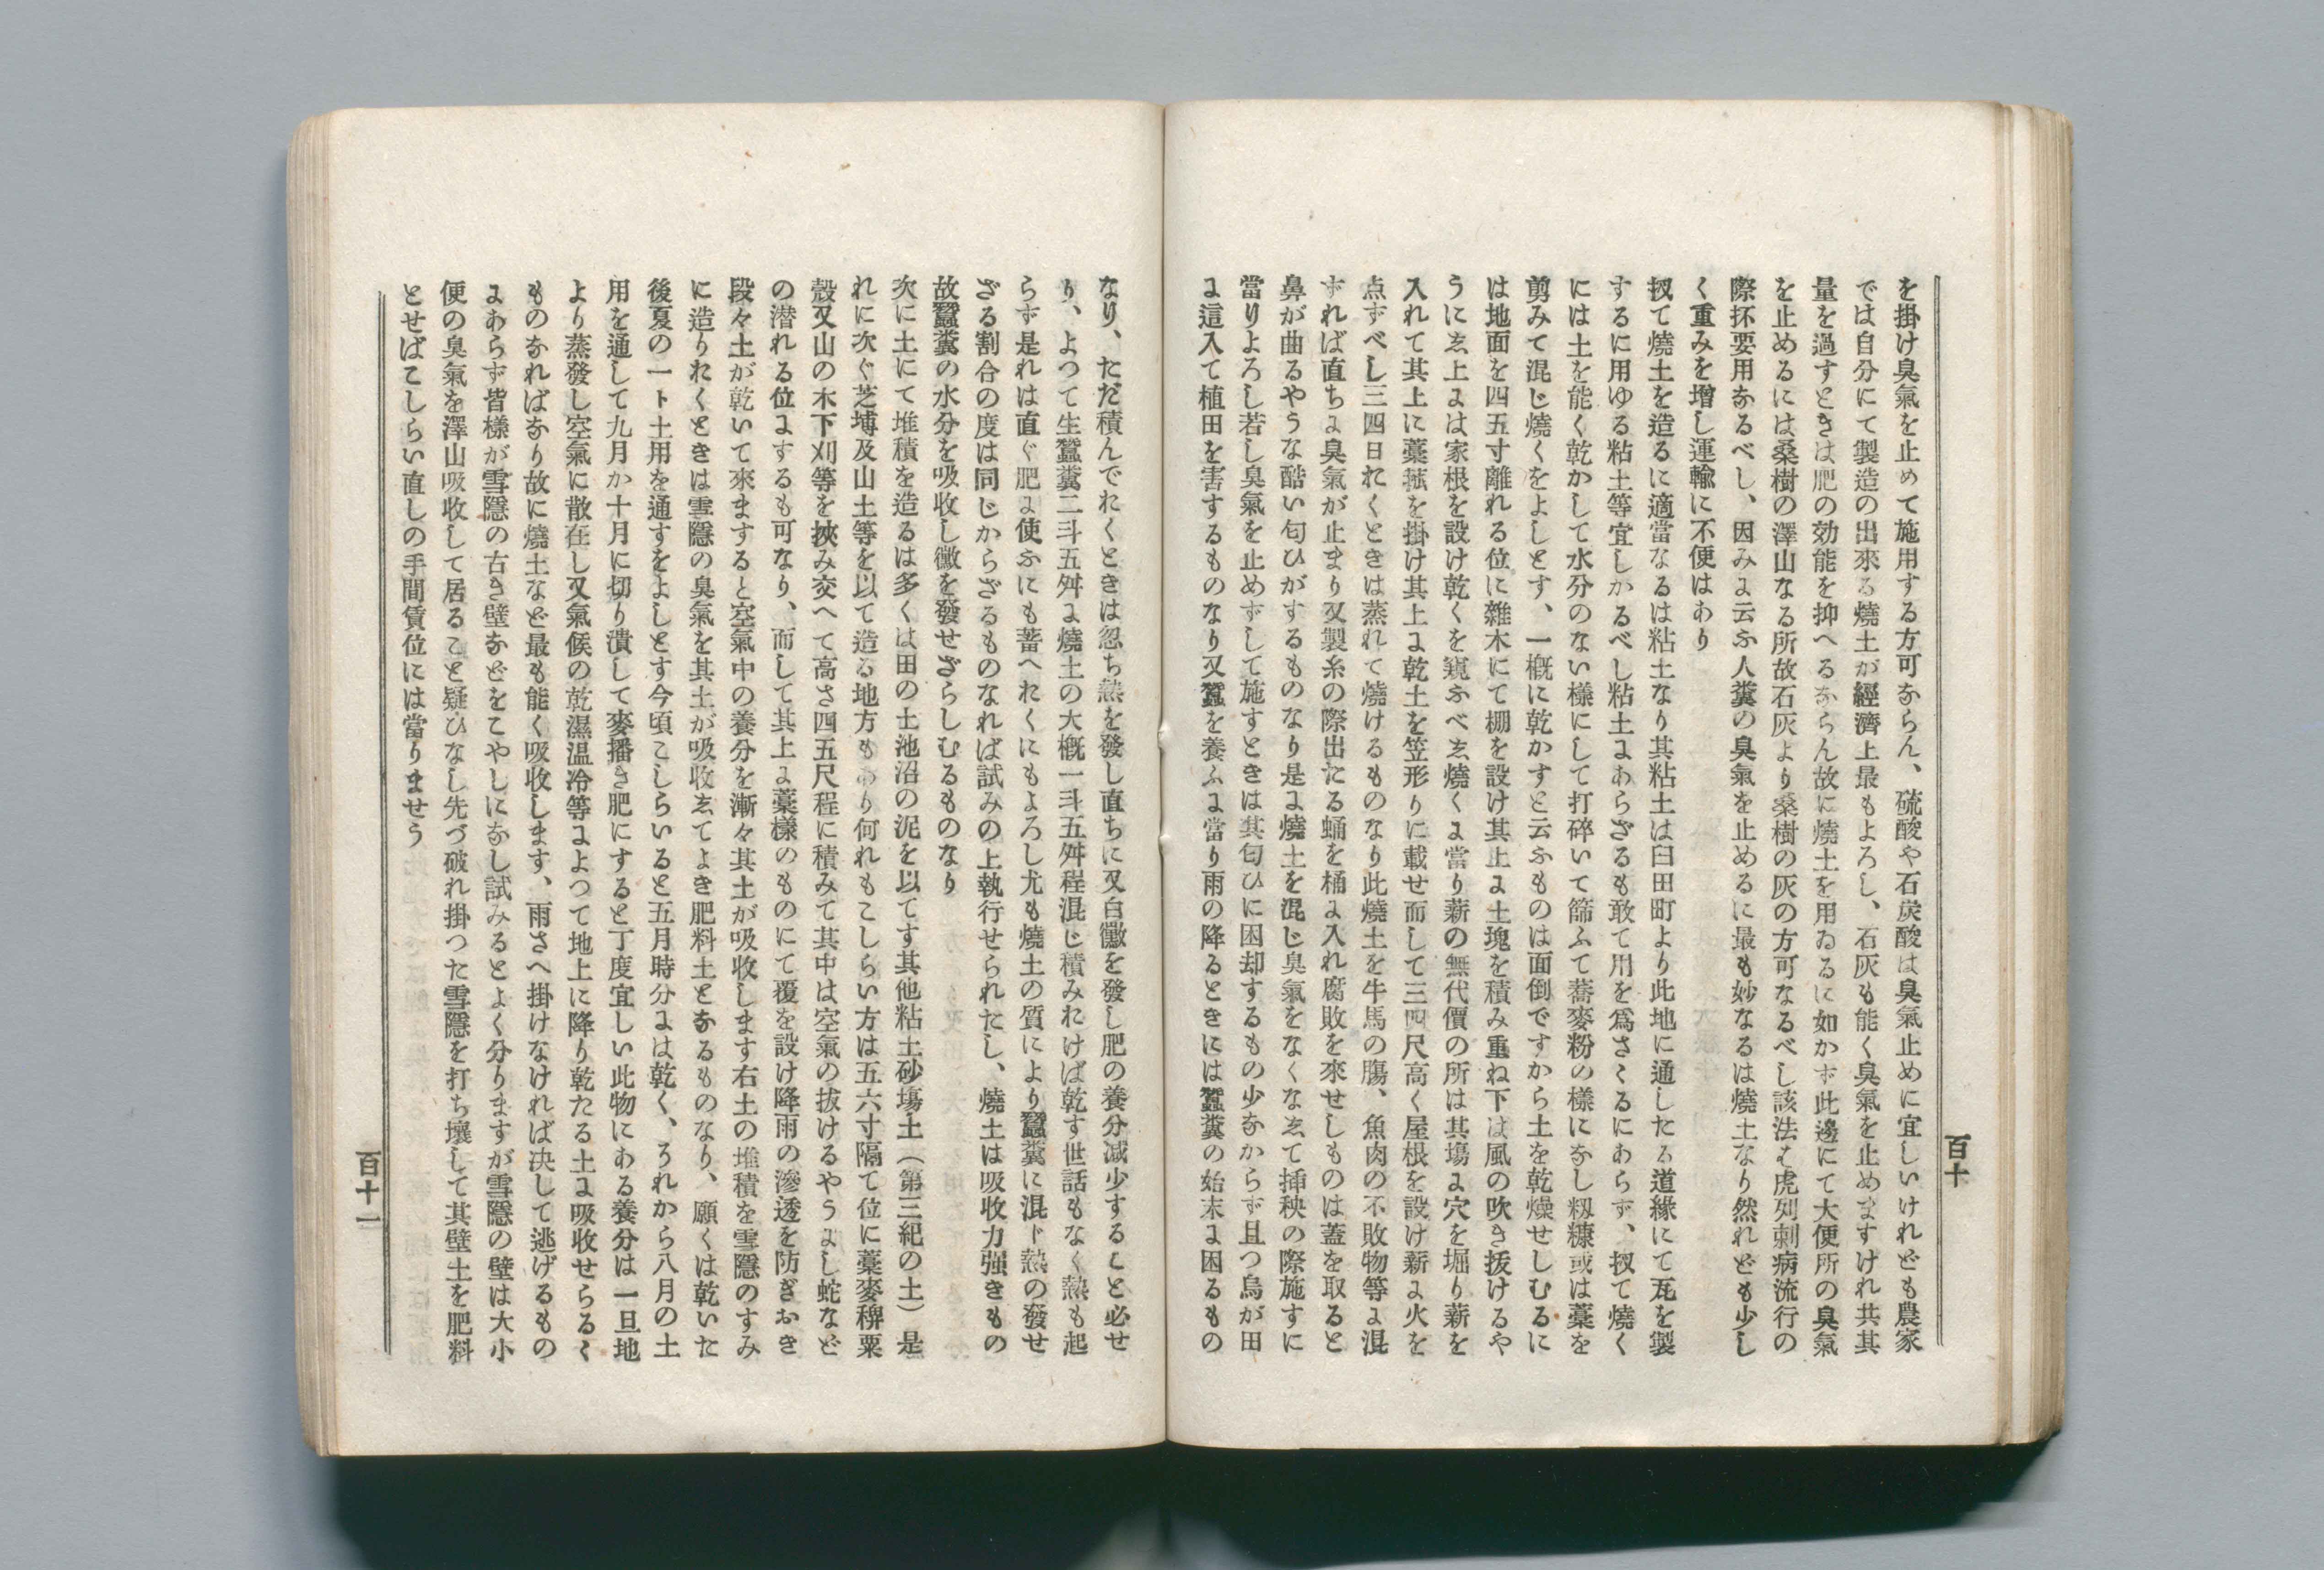 を掛け臭氣を止めて施用する方可なからん、硫酸や石炭酸は臭氣止めに宜しいけれども農家
では自分にて製造の出來る燒土が經濟上最もよろし、石灰も能く臭氣を止めますけれ共其
量を過すときは肥の効能を抑へるならん故に燒土を用ゐるに如かず此邊にて大便所の臭氣
を止めるには桑樹の澤山なる所故石灰より桑樹の灰の方可なるべし該法は虎列刺病流行の
際抔要用なるべし、因みに云ふ人糞の臭氣を止めるに最も妙なるは燒土なり然れども少し
く重みを增し運輸に不便はあり
扨て燒土を造るに適當なるは粘土なり其粘土は臼田町より此地に通したる道緣にて瓦を製
するに用ゆる粘土等宜しかるべし粘土にあらざるも敢て用を爲さゝるにあらず、扨て燒く
には土を能く乾かして水分のない樣にして打碎いて篩ふて蕎麥粉の樣になし籾糠或は藁を
剪みて混じ燒くをよしとす、一概に乾かすと云ふものは面倒ですから土を乾燥せしむるに
は地面を四五寸離れる位に雜木にて棚を設け其上に土塊を積み重ね下は風の吹き拔けるや
うにし上には家根を設け乾くを窺ふべし燒くに當り薪の無代價の所は其塲に穴を堀り薪を
入れて其上に藁菰を掛け其上に乾土を笠形りに載せ而して三四尺高く屋根を設け薪に火を
点ずべし三四日おくときは蒸れて燒けるものなり此燒土を牛馬の膓、魚肉の不敗物等に混
ずれば直ちに臭氣が止まり又製糸の際出たる蛹を桶に入れ腐敗を來せしものは蓋を取ると
鼻が曲るやうな酷い匂ひがするものなり是に燒土を混じ臭氣をなくなして挿秧の際施すに
當りよろし若し臭氣を止めずして施すときは其匂ひに困却するもの少なからず且つ烏が田
に這入て植田を害するものなり又蠶を養ふに當り雨の降るときには蠶糞の始末に困るもの
百十
なり、ただ積んでおくときは忽ち熱を發し直ちに又白黴を發し肥の養分减少すること必せ
り、よつて生蠶糞二斗五舛に燒土の大概一斗五舛程混じ積みおけば乾す世話もなく熱も起
らず是れは直ぐ肥に使ふにも蓄へおくにもよろし尤も燒土の質により蠶糞に混ト熱の發せ
ざる割合の度は同じからざるものなれば試みの上執行せられたし、燒土は吸收力强きもの
故蠶糞の水分を吸收し黴を發せざらしむるものなり
次に土にて堆積を造るは多くは田の土池沼の泥を以てす其他粘土砂塲土（第三紀の土）是
れに次ぐ芝塼及山土等を以て造る地方もあり何れもこしらい方は五六寸隔て位に藁麥稗粟
殼又山の木下刈等を挾み交へて高さ四五尺程に積みて其中は空氣の拔けるやうにし蛇など
の潜れる位にするも可なり、而して其上に藁樣のものにて覆を設け降雨の滲透を防ぎおき
段々土が乾いて來ますると空氣中の養分を漸々其土が吸收します右土の堆積を雪隱のすみ
に造りおくときは雪隱の臭氣を其土が吸收してよき肥料土となるものなり、願くは乾いた
後夏の一ト土用を通すをよしとす今頃こしらいると五月時分には乾く、それから八月の土
用を通して九月か十月に切り潰して麥播き肥にすると丁度宜しい此物にある養分は一旦地
より蒸發し空氣に散在し又氣候の乾濕温冷等によつて地上に降り乾たる土に吸收せらるゝ
ものなればなり故に燒土など最も能く吸收します、雨さへ掛けなければ决して逃げるもの
にあらず皆樣が雪隱の古き壁などをこやしになし試みるとよく分りますが雪隱の壁は大小
便の臭氣を澤山吸收して居ること疑ひなし先づ破れ掛つた雪隱を打ち壞して其壁土を肥料
とせばこしらい直しの手間賃位には當りませう
百十一